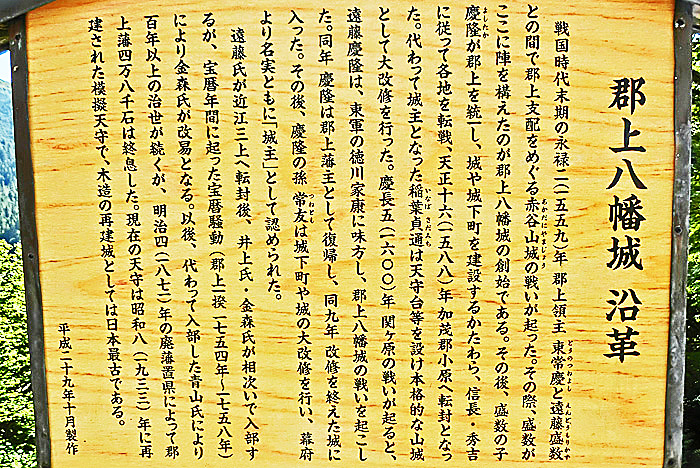 郡上八幡城 沿革
戦国時代末期の永禄二(一五五九)年 郡上領主 東常慶と遠藤盛数
との間で郡上支配をめぐる赤谷山城の戦いが起った。その際、盛数が
ここに陣を構えたのが郡上八幡城の創始である。その後、盛数の子
慶隆が郡上を統一し、城や城下町を建設するかたわら、信長・秀吉
に従って各地を転戦、天正十六(一五八八)年 加茂郡小原へ転封となっ
た。代わって城主となった稲葉貞通は天守台等を設け本格的な山城
として大改修を行った。慶長五(一六〇〇)年 関ヶ原の戦いが起ると、
遠藤慶隆は、東軍の徳川家康に味方し、郡上八幡城の戦いを起こし
た。同年 慶隆は郡上藩主として復帰し、同九年 改修を終えた城に
入った。その後、慶隆の孫 常友は城下町や城の大改修を行い、幕府
より名実ともに「城主」として認められた。
遠藤氏が近江三上へ転封後、井上氏・金森氏が相次いで入部す
るが、宝暦年間に起った宝暦騒動(郡上一揆 一七五四年〜一七五八年)
により金森氏が改易となる。以後、代わって入部した青山氏により
百年以上の治世が続くが、明治四(一八七一)年の廃藩置県によって郡
上藩四万八千石は終息した。現在の天守は昭和八(一九三三)年に再
建された模擬天守で、木造の再建城としては日本最古である。
平成二十九年十月製作